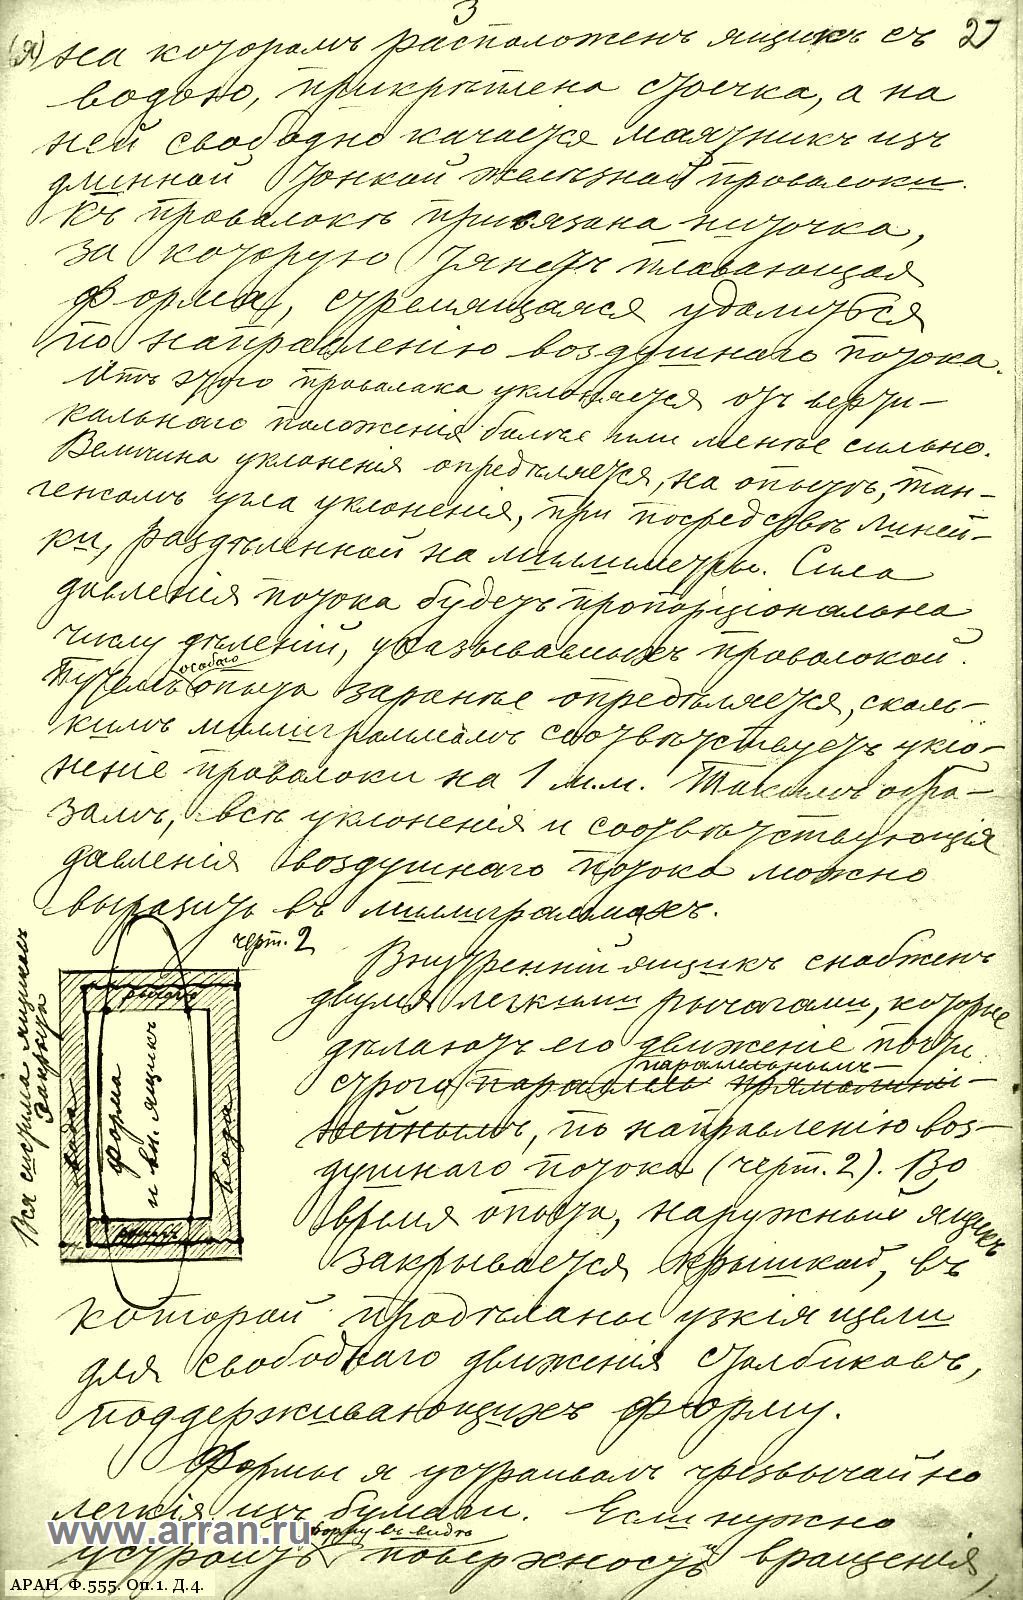 3
(я) 27
на которомъ расположенъ ящикъ съ
водою, прикрѣплена стоечка, а на
ней свободно качается маятникъ изъ
длинной тонкой желѣзной проволоки.
Къ проволокѣ привязана ниточка,
за которую тянетъ плавающая
форма, стремящаяся удалиться
по направленію воздушнаго потока.
Отъ этого проволака уклоняется отъ верти-
кальнаго положенія болѣе или менѣе сильно.
Величина уклоненія опредѣляется, на опытѣ, тан-
генсомъ угла уклоненія, при посредствѣ линей-
ки, раздѣленной на миллиметры. Сила
давленія потока будетъ пропорціональна
числу дѣленій, указываемыхъ проволокой.
особаго
Путемъ опыта заранѣе опредѣляется, сколь-
кимъ миллиграммамъ соотвѣтствуетъ укло-
неніе проволоки на 1 м.м. Такимъ обра-
зомъ, всѣ уклоненія и соотвѣтствующія
давленія воздушнаго потока можно
выразить въ миллиграммахъ.
черт. 2
Внутренній ящикъ снабженъ
двумя легкими рычагами, которые
дѣлаютъ его движеніе почти
параллельнымъ
строго прямолині-
нейнымъ, по направленію воз-
душнаго потока (черт. 2). Во
время опыта, наружный ящикъ
закрывается крышкой, въ
которой продѣланы узкія щели
для свободнаго движенія столбиковъ,
поддерживающихъ форму.
Вся смотрила ящикомъ
вода
форма
и вн. ящикъ
вода
рычагъ
рычагъ
Формы я устраивалъ чрезвычайно
легкія изъ бумаги. Если нужно
форму въ видѣ
устроить поверхность вращенія,
www.arran.ru
АРАН. Ф.555. Оп.1. Д.4.